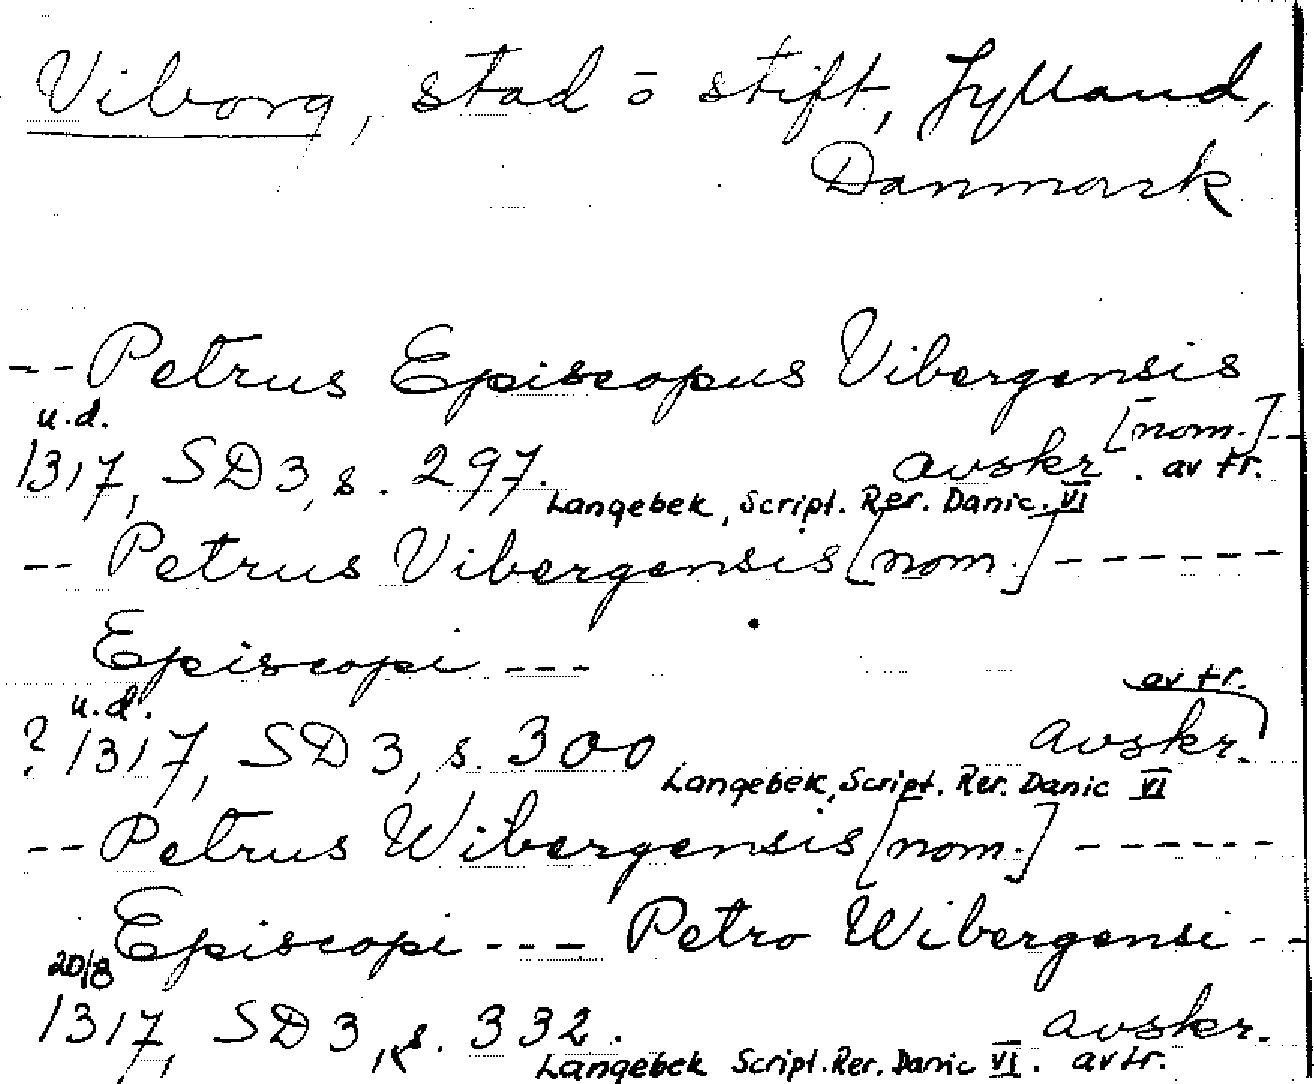 Viborg, stad o stift, Jylland,
Danmark
-- Petrus Episcopus Vibergensis
[nom.] --
u.d.
1317, SD 3, s. 297. avskr. av tr.
Langebek, Script. Rer. Danic. VI
-- Petrus Vibergensis [nom.] ------
Episcopi ---
u.d. av tr.
? 1317, SD 3, s. 300 avskr.
Langebek, Script. Rer. Danic VI
-- Petrus Wibergensis [nom.] ------
Episcopi --- Petro Wibergensi --
20/8
1317, SD 3, s. 332. avskr.
Langebek Script. Rer. Danic VI. av tr.